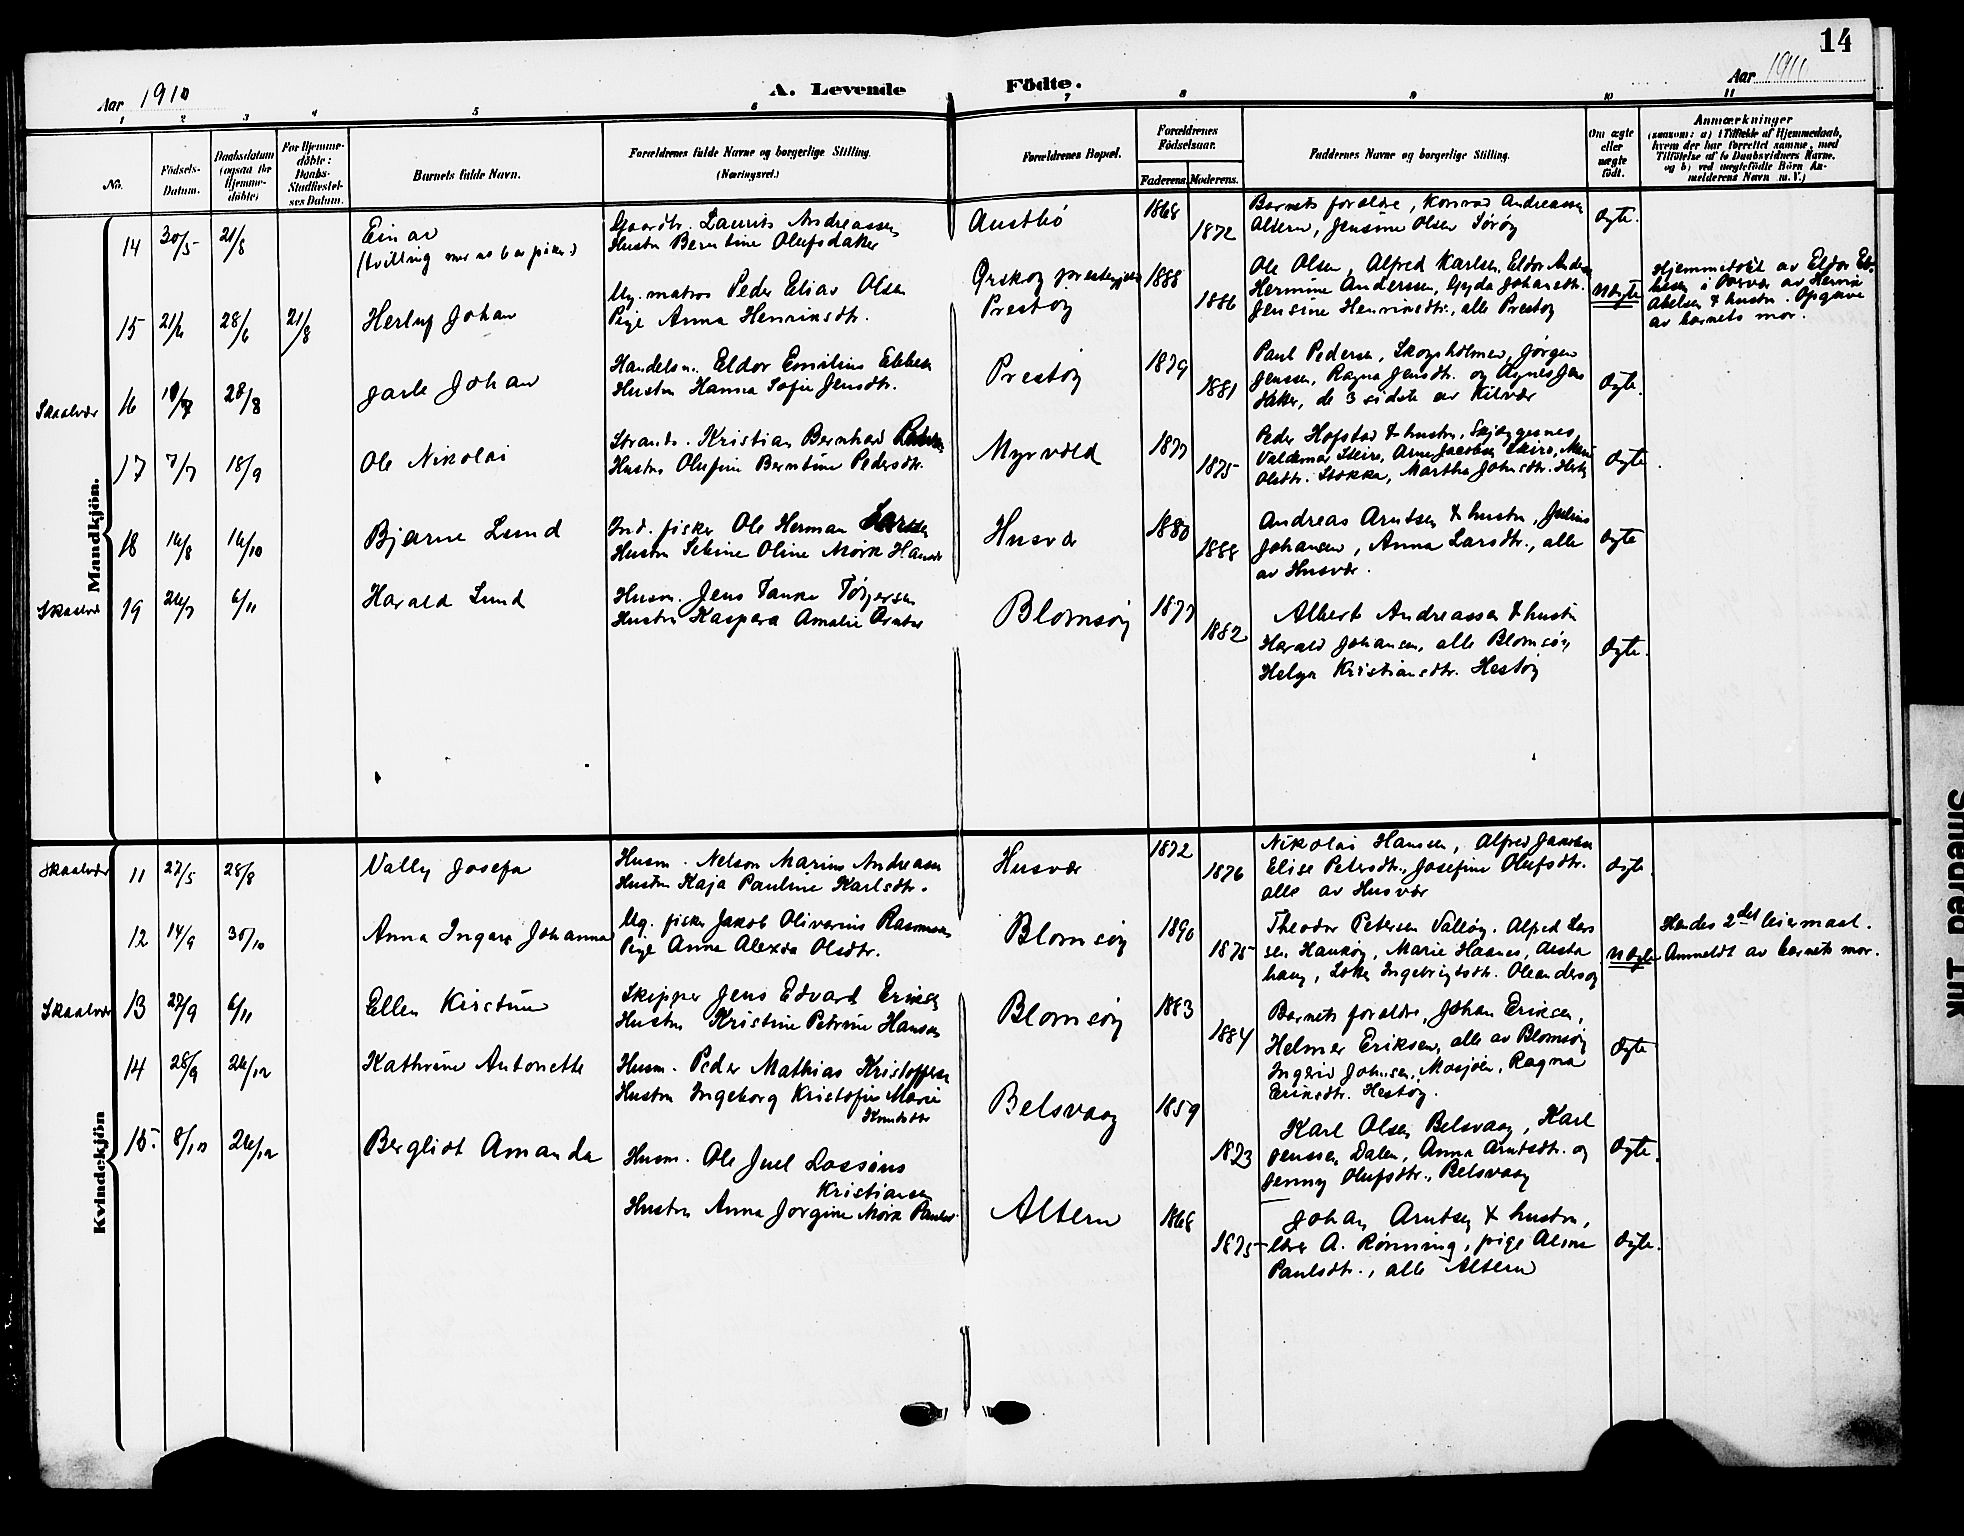 14
Aar 1910
A. Levende
Födte.
Aar 1910
1 2 3 4 5 6 7 8 9 10 11
No.
Födsels-
Datum.
Daabsdatum
(ogsaa för
Hjemme-
döbte)
For Hjemme-
döbte:
Daabs-
Stadfæstel-
ses Datum.
Barnets fulde Navn.
Forældrenes fulde Navne og borgerlige Stilling.
(Næringsvei.)
Forældrenes Bopæl.
Forældrenes
Födselsaar.
Faderens.
Moderens.
Faddernes Navne og borgerlige Stilling.
Om ægte
eller
uægte
födt.
Anmærkninger
(saasom: a) i Tilfælde af Hjemmedaab,
hvem der har forrettet samme, med
Tilföielse af to Daabsvidners Navne,
og b) ved uægtefödte Börn An-
melderens Navn m. V.)
Mandkjön.
14 30/5 21/8
Einar
(tvilling mer no 6 av piker)
Gaardbr. Laurits Andreassen
Hustru Berntine Olufsdaker
Austbö
1868
1872
Barnets foraldre, Konrad Andreassen
Altern, Jensine Olsen Söröy
Ægte.
15 21/6 28/6 21/8
Herluf Johan
Ug. matros Peder Elias Olsen
Pige Anna Henriksdtr.
Ørskog prestegjeld
Prestöy
1888
1886
Ole Olsen, Alfred Karlsen, Eldor Anders
Hermine Anderssen, Gyda Johansdtr.
Jensine Henriksdtr., alle Prestöy
Uægte
Hjemmedöbt av Eldor Eb-
besen i Oarvær av Henrik
Abelsen & hustru. Opgave
av barnets mor.
Skaalvær
16 28/8
Jarle Johan
Handelsm. Eldor Emilius Ebbesen
Hustru Hanna Sofie Jensdtr.
Prestöy
1879
1881
Paul Pedersen, Skogsholmen, Jörgen
Jenssen, Ragna Jensdtr. og Agnes Jens
daker, de 3 sidste av Kilvær
Ægte.
17 7/7 18/9
Ole Nikolai
Strands. Kristian Bernhard
Hustru Olufine Berntine Pedersdtr.
Myrvold
1877
1875
Peder Hofstad & hustru, Skjeggesnes,
Valdemar Skeire, Arne Jacobsen Skeire,
Olsdtr. Stokka, Martha Johnsdtr.
Ægte.
18 16/8 16/10
Bjarne Lund
Ind. fisker Ole Herman Larsen
Hustru Sekine Oline Mörk Hansdtr
Husvær
1880
1888
Andreas Arntsen & hustru, Julius
Johansen, Anna Larsdtr., alle
av Husvær.
Ægte
Skaalvær
19 26/7 6/11
Harald Lund
Husm. Jens Tanke Törjersen
Hustru Kaspara Amalie
Blomsöy
1877
1882
Albert Andreassen & hustru
Harald Johansen, alle Blomsöy
Helga Kristiansdtr. Hestöy
Ægte.
Kvindekjön
Skaalvær
11 27/5 28/8
Vally Josefa
Husm. Nelson Marius Andreassen
Hustru Kaja Pauline Karlsdtr.
Husvær
1872
1876
Nikolai Hansen, Alfred Jakobsen
Elise Petersdtr., Josefine Olufsdtr.
alle av Husvær
Ægte.
12 14/9 30/10
Anna Ingara Johanna
Ug. fisker Jakob Oliverius Rasmussen
Pige Anna Alexda Olsdtr.
Blomsöy
1890
1875
Theodor Petersen Valöy. Alfred Lars
sen Hauköy, Marie Haanes, Aasta
haug, Ingebrigtsdtr. Oleandersöy
Uægte
Hendes 2det leiermaal.
Anmeldt av barnets mor.
Skaalvær
13 27/9 6/11
Ellen Kirstine
Skipper Jens Edvard Eriksen
Hustru Kristine Petrine Hansen
Blomsöy
1883
1884
Barnets foraldre, Johan Eriksen,
Helmer Eriksen, alle av Blomsöy
Ingerid Johnsen, Mosjöen, Ragna
Eriksdtr. Hestöy.
Ægte
14 28/9 26/12
Kathrine Antonette
Husm. Peder Mathias Kristoffersen
Hustru Ingeborg Kristofine Marie
Knutsdtr
Belsvaag
1859
1873
Karl Olsen Belsvaag, Karl
Jenssen Dalen, Anna Arntsdtr. og
Jenny Olufsdtr., Belsvaag
Ægte.
15. 8/10 26/12
Bergliot Amanda
Husm. Ole Juel Lossius
Kristiansen
Hustru Anna Jörgine Mörk Paulsd.
Altern
1868
1875
Johan Arntsen & hustru,
A. Rönning, pige Aline
Paulsdtr., alle Altern
Ægte.